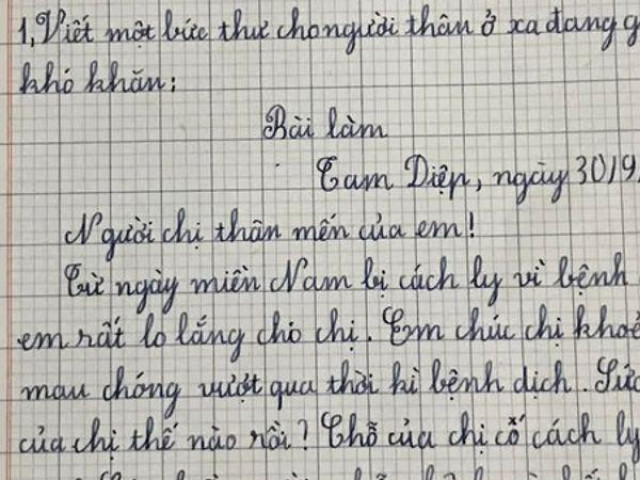 1, Viết một bức thư cho người thân ở xa đang g
khó khăn:
Bài làm
Tam Diệp, ngày 30/9
Người chị thân mến của em!
Từ ngày miền Nam bị cách ly vì bệnh
em rất lo lắng cho chị. Em chúc chị khoẻ
mau chóng vượt qua thời kì bệnh dịch. Sức
của chị thế nào rồi? Chỗ của chị có cách ly